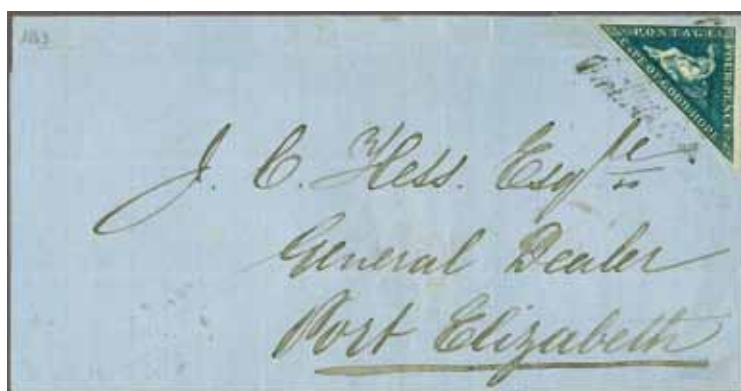 1863
POSTAGE
FOUR PENCE
CAPE OF GOOD HOPE
J. C. Hess. Esqre
General Dealer
Port Elizabeth